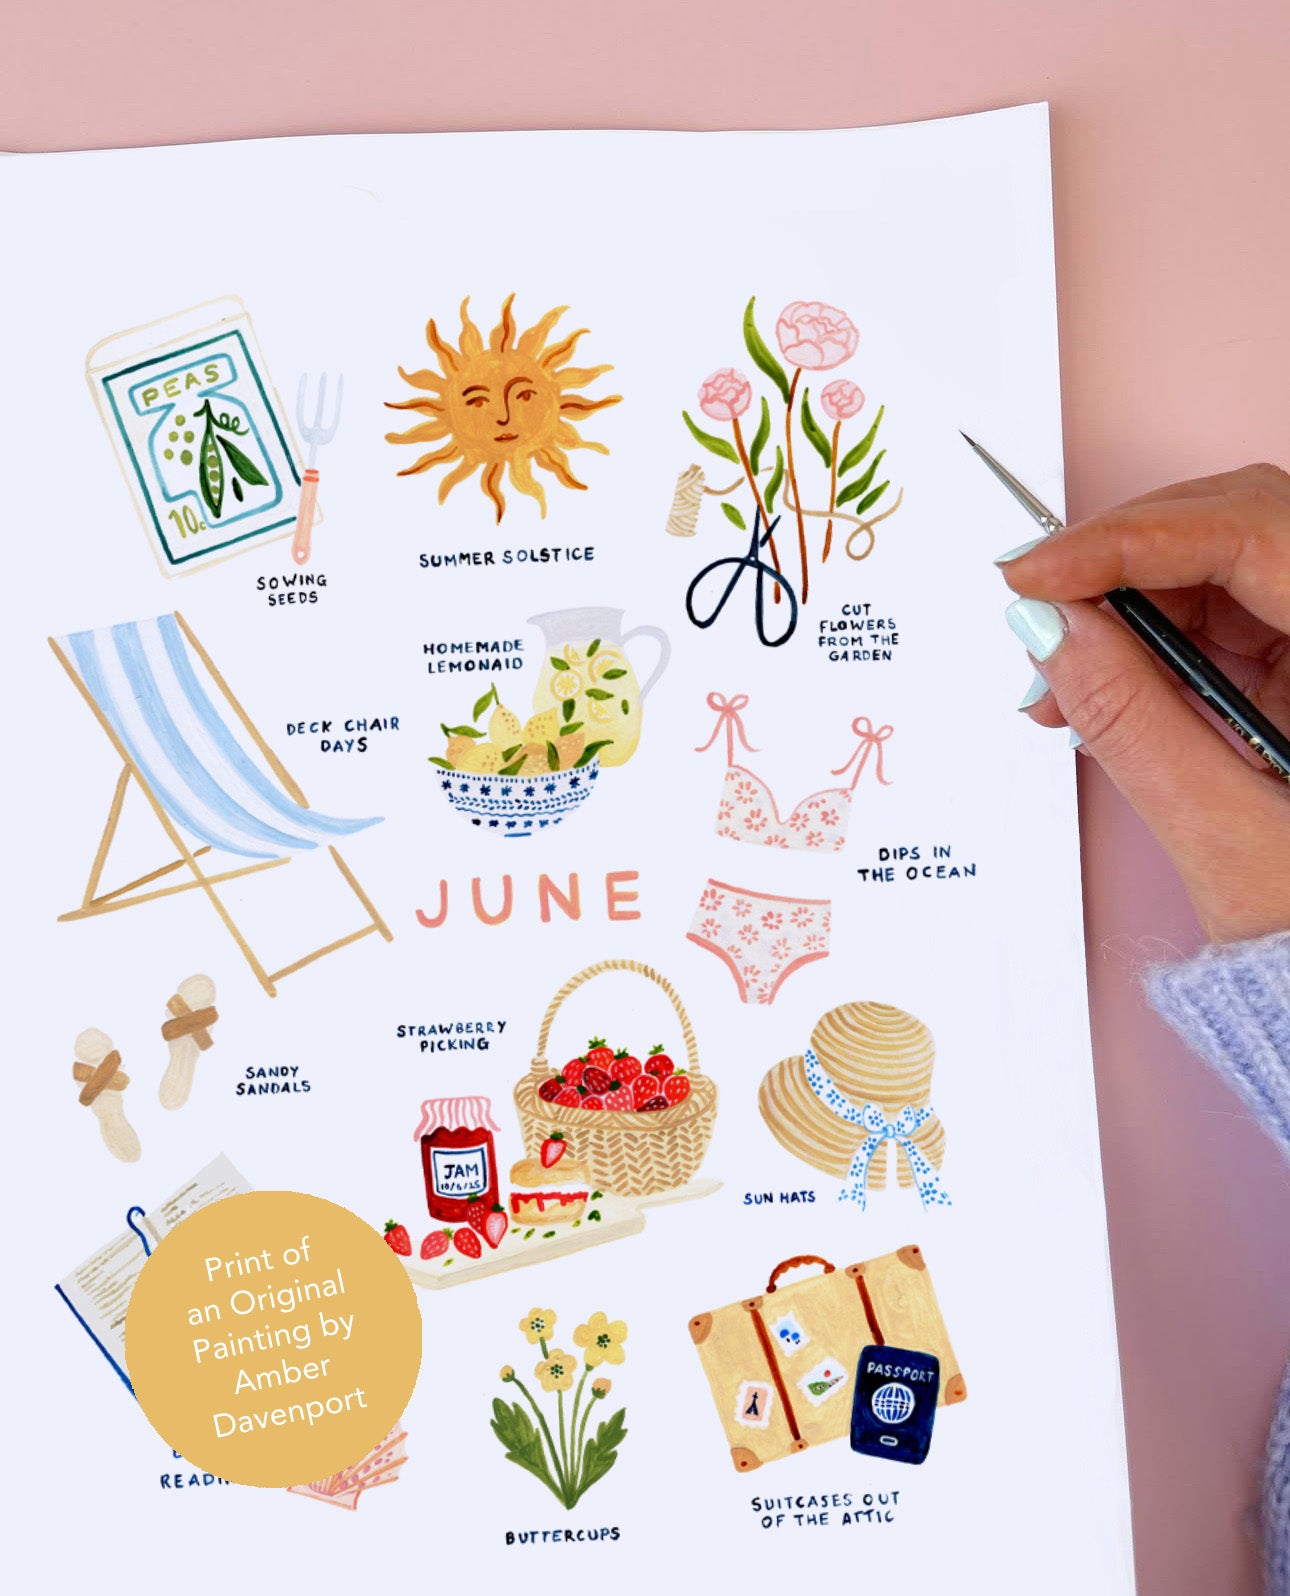 PEAS
10c
SOWING
SEEDS
SUMMER SOLSTICE
CUT
FLOWERS
FROM THE
GARDEN
HOMEMADE
LEMONAID
DECK CHAIR
DAYS
DIPS IN
THE OCEAN
JUNE
STRAWBERRY
PICKING
SANDY
SANDALS
JAM
10/6/25
SUN HATS
Print of
an Original
Painting by
Amber
Davenport
PASSPORT
BUTTERCUPS
SUITCASES OUT
OF THE ATTIC